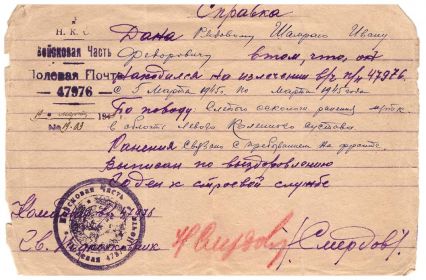 Справка
Н. К. О.
Войсковая Часть
Полевая Почта
47976
Дана Рядовому Шалаго Ивану
Федоровичу в том, что он
находился на излечении в/ч п/п 47976
с 5 марта 1945 г. по марта 1945 года
По поводу слепого осколочн ранения мягк.
в области левого коленного сустава
Ранения связано с пребыванием на фронте
Выписан по выздоровлению
Годен к строевой службе
Командир в/ч 47976
Войсковая Часть
Полевая Почта 47976
/Смердов/